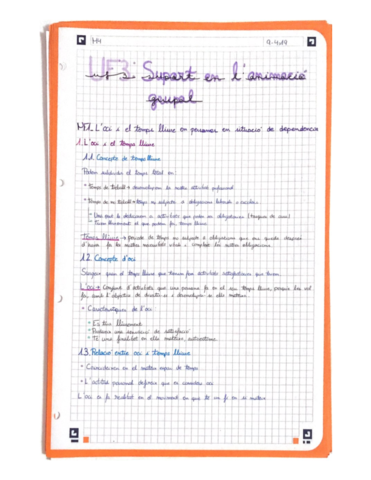 M4
9-4-19
UF3: Suport en l'animació
grupal
NF1. L'oci i el temps lliure en persones en situació de dependència
1. L'oci i el temps lliure
1.1. Concepte de temps lliure
Podem subdividir el temps total en
• Temps de treball → desenvolupem la nostra activitat professional
• Temps de no treball → temps no subjecte a obligacions laborals o escolars
- Una part la dediquem a activitats que poden ser obligatòries (tasques de casa)
Temps lliure → període de temps no subjecte a obligacions que ens queda després
d'haver fet les nostres necessitats vitals i complets les nostres obligacions.
1.2. Concepte d'oci
Sorgeix quan el temps lliure que tenim fem activitats satisfactòries que
L'oci → Conjunt d'activitats que una persona fa en el seu temps lliure, perquè les vol
fer, amb l'objectiu de divertir-se i desenvolupar-se ella mateixa.
• Característiques de l'oci
• Es tria lliurement
• Produeix una sensació de satisfacció
• Té una finalitat en ella mateixa, autotèlica
1.3. Relació entre oci i temps lliure
• Coincideixen en el mateix espai de temps
• L'actitud personal defineix que es considera oci
L'oci es fa realitat en el moment en que té un fi en si mateix